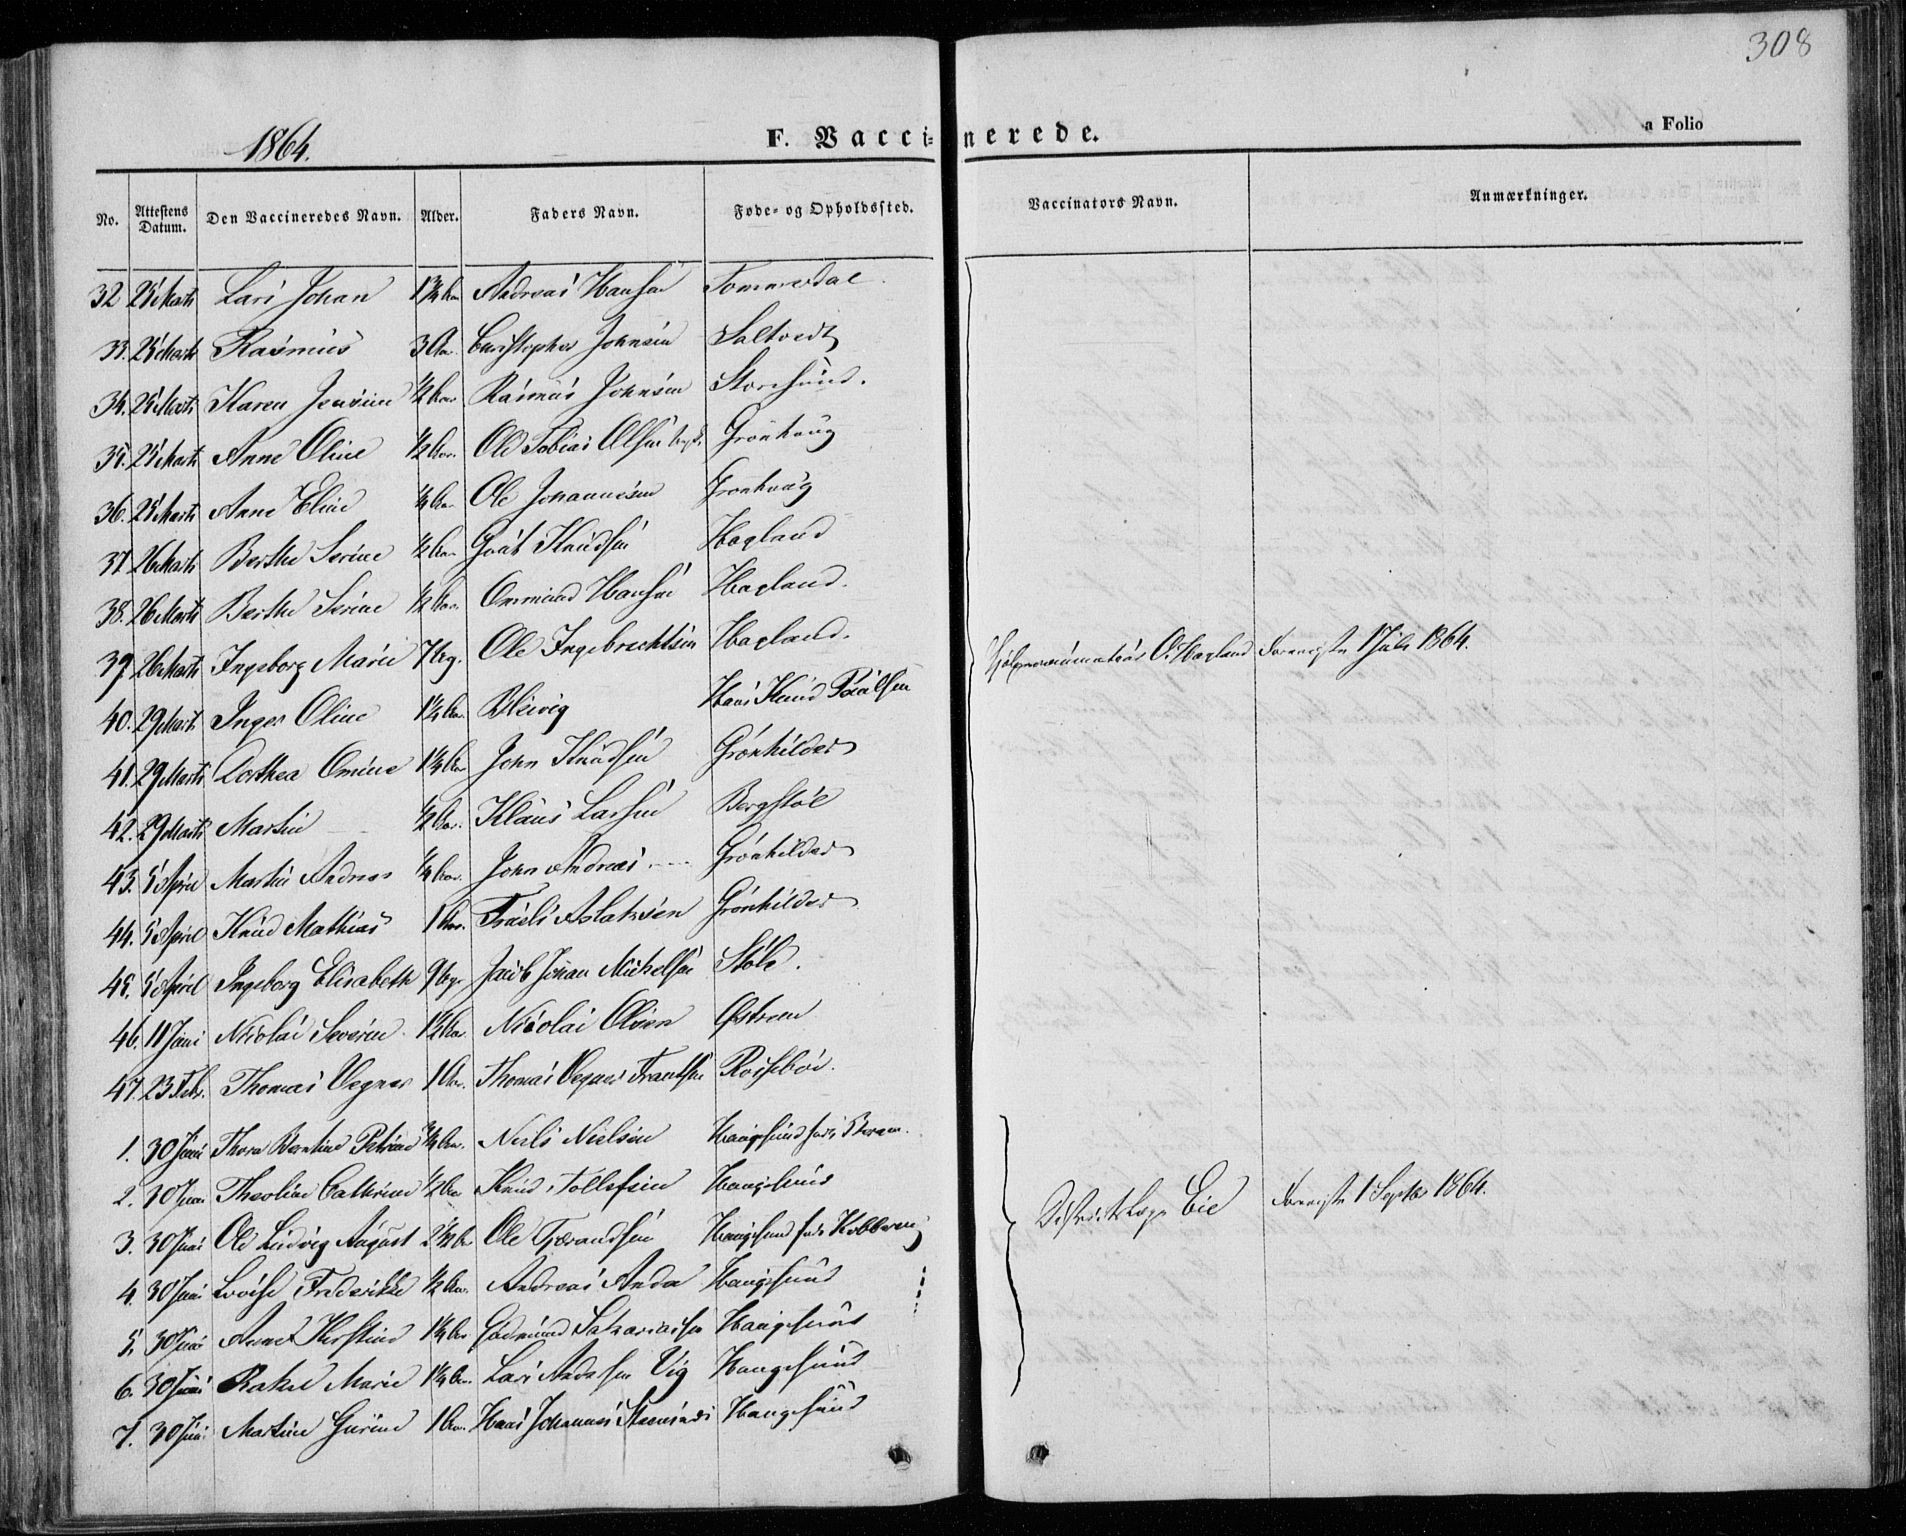 308
1864.
F. Vaccinerede.
a Folio
No. Attestens Datum. Den Vaccineredes Navn. Alder. Faders Navn. Føde- og Opholdssted. Vaccinators Navn. Anmærkninger.
32 Marts Lars Johan 1¾ Aar Andreas Hansen Tommerdal
33. Marts Rasmus 3 Aar. Christopher Johnsen Saltvedt
34. Marts Karen Jensine ½ Aar Rasmus Johnsen Storesund.
35. Marts Anne Oline ½ Aar. Ole Tobias Olsen Grønhaug
36. Marts Anne Eline Aar Ole Johannesen Grønhaug
37. 26 Marts Berthe Serine ½ Aar Knudsen Hagland
38. 26 Marts Berthe Serine ½ Aar. Ommund Hansen Hagland.
39. 26 Marts Ingeborg Marie 7 Ole Ingebrechtsen Hagland. O. Hagland 1 Juli 1864.
40. 29 Marts Inger Oline 1¼ Aar Bleivig Hans Knud Poulsen
41. 29 Marts Dorthea Omine 1¼ Aar John Knudsen Grønhilder
42. 29 Marts Martin ½ Aar. Klaus Larsen Bergstøl
43. 5 April Martin Andreas ¼ Aar. John Andreas Grønhilder
44. 5 April Knud Mathias 1 Aar. Aslaksen Grønhilder
45. 5 April Ingeborg Elisabeth 9 Jacob Johan Mickelsen Støle.
46. 11 Juni Nicolai Severin 1½ Aar. Nicolai Olsen Østrem
47. 23 Febr. Thomas Vegner 1 Aar. Thomas Vegner Frantsen Røssebøe.
1. 30 Juni Thora Berntine Petrine ¾ Aar. Neils Nielsen Haugesund
2. 30 Juni Theoline Cathrine ½ Aar Knud Tollefsen Haugesund
3. 30 Juni Ole Ludvig August 2½ Ole Tjerandsen Haugesund
Districtslæge Eie 1 Septbr 1864.
4. 30 Juni Lovise Frederikke ½ Aar. Andreas Anda Haugesund
5. 30 Juni Anne Kirstine 1¼ Aar Gudmund Sakariassen Haugesund
6. 30 Juni Rakel Marie 1¼ Aar. Lars Andersen Vig Haugesund
7. 30 Juni Martine Gurine 1 Aar. Hans Johannes Haugesund